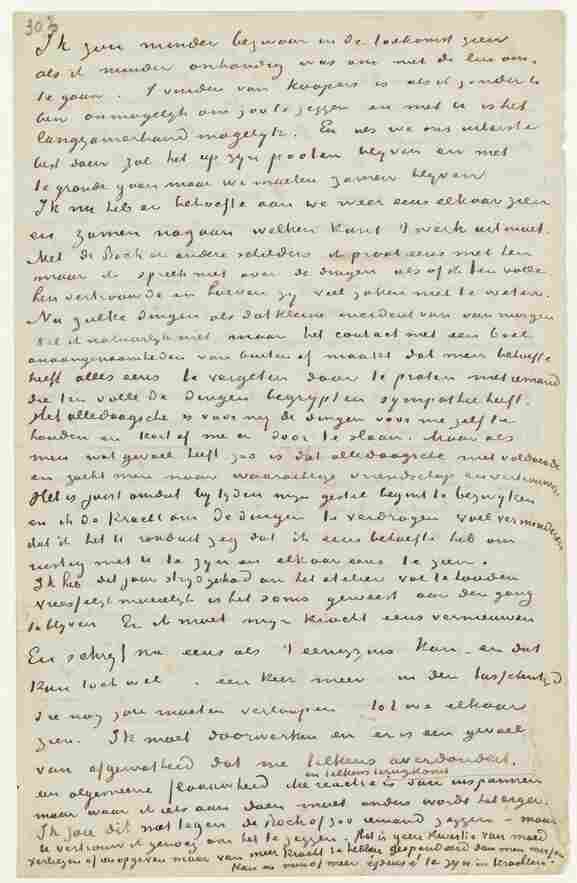 303
Ik zou minder bezwaar in de toekomst zien
als ik minder onhandig was om met de lui om
te gaan. 't vinden van koopers is als ik zonder u
ben onmogelijk om zoo te zeggen en met u is het
langzamerhand mogelijk. En als we ons uiterste
best doen zal het op zijn pooten blijven en niet
te gronde gaan maar we moeten zamen blijven
Ik nu heb er behoefte aan we weer eens elkaar zien
en zamen nagaan welken kant 't werk uitmoet.
Met de Bock en andere schilders ik praat eens met hen
maar ik spreek niet over de dingen als of ik ten volle
hen vertrouwde en hoeven zij veel zaken niet te weten.
Nu zulke dingen als dat kleine incident van van morgen
tel ik natuurlijk niet maar het contact met een boel
onaangenaamheden van buiten af maakt dat men behoefte
heeft alles eens te vergeten door te praten met iemand
die ten volle de dingen begrijpt en sympathie heeft.
Het alledaagsche is voor mij de dingen voor me zelf te
houden en kort af me er door te slaan. Maar als
men wat gevoel heeft zoo is dat alledaagsche niet voldoende
en zoekt men naar waarachtige vriendschap en vertrouwen.
Het is juist omdat bij tijden mijn gestel begint te bezwijken
en ik de kracht om de dingen te verdragen voel verminderen
dat ik het u ronduit zeg dat ik eens behoefte heb om
rustig met u te zijn en elkaar eens te zien.
Ik heb dit jaar strijd gehad om het atelier vol te houden
vreesselijk moeielijk is het soms geweest aan den gang
te blijven En ik moet mijn kracht eens vernieuwen
En schrijf nu eens als 't eenigzins kan – en dat
kan toch wel – een keer meer in den tusschentijd
die nog zou moeten verloopen tot we elkaar
zien. Ik moet doorwerken en er is een gevoel
van afgematheid dat me telkens overdondert.
en telkens terugkomt
een algemeene flaauwheid die reactie is van inspannen
maar waar ik iets aan doen moet anders wordt het erger.
Ik zou dit niet tegen de Bock of zoo iemand zeggen – maar
u vertrouw ik genoeg om het te zeggen. Het is geen kwestie van moed
verliezen of van opgeven maar van meer kracht te hebben gespendeerd dan men missen
kan en min of meer